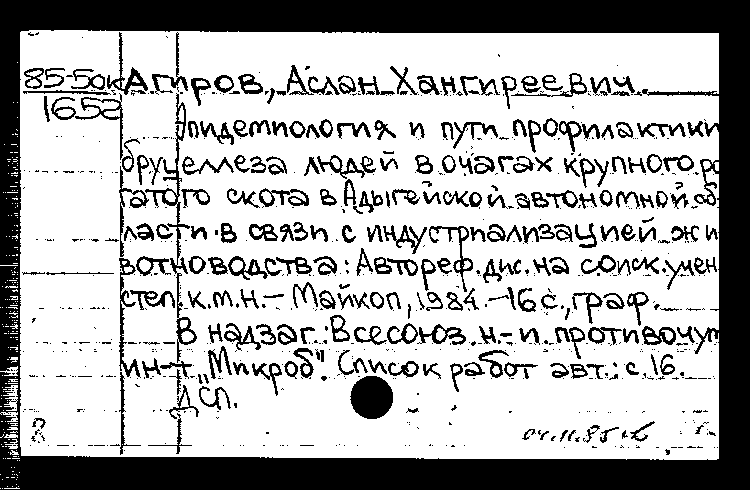 85-5ок Агиров, Аслан Хангиреевич.
1652
Эпидемиология и пути профилактики
бруцеллеза людей в очагах крупного ро
гатого скота в Адыгейской автономной об
ласти в связи с индустриализацией жи
вотноводства: Автореф. дис. на соиск. учен
степ. к.м.н. – Майкоп, 1984. – 16 с., граф.
В надзаг.: Всесоюз. н.-и. противочум
ин-т „Микроб". Список работ авт.: с. 16.
ДСП.
04.11.85